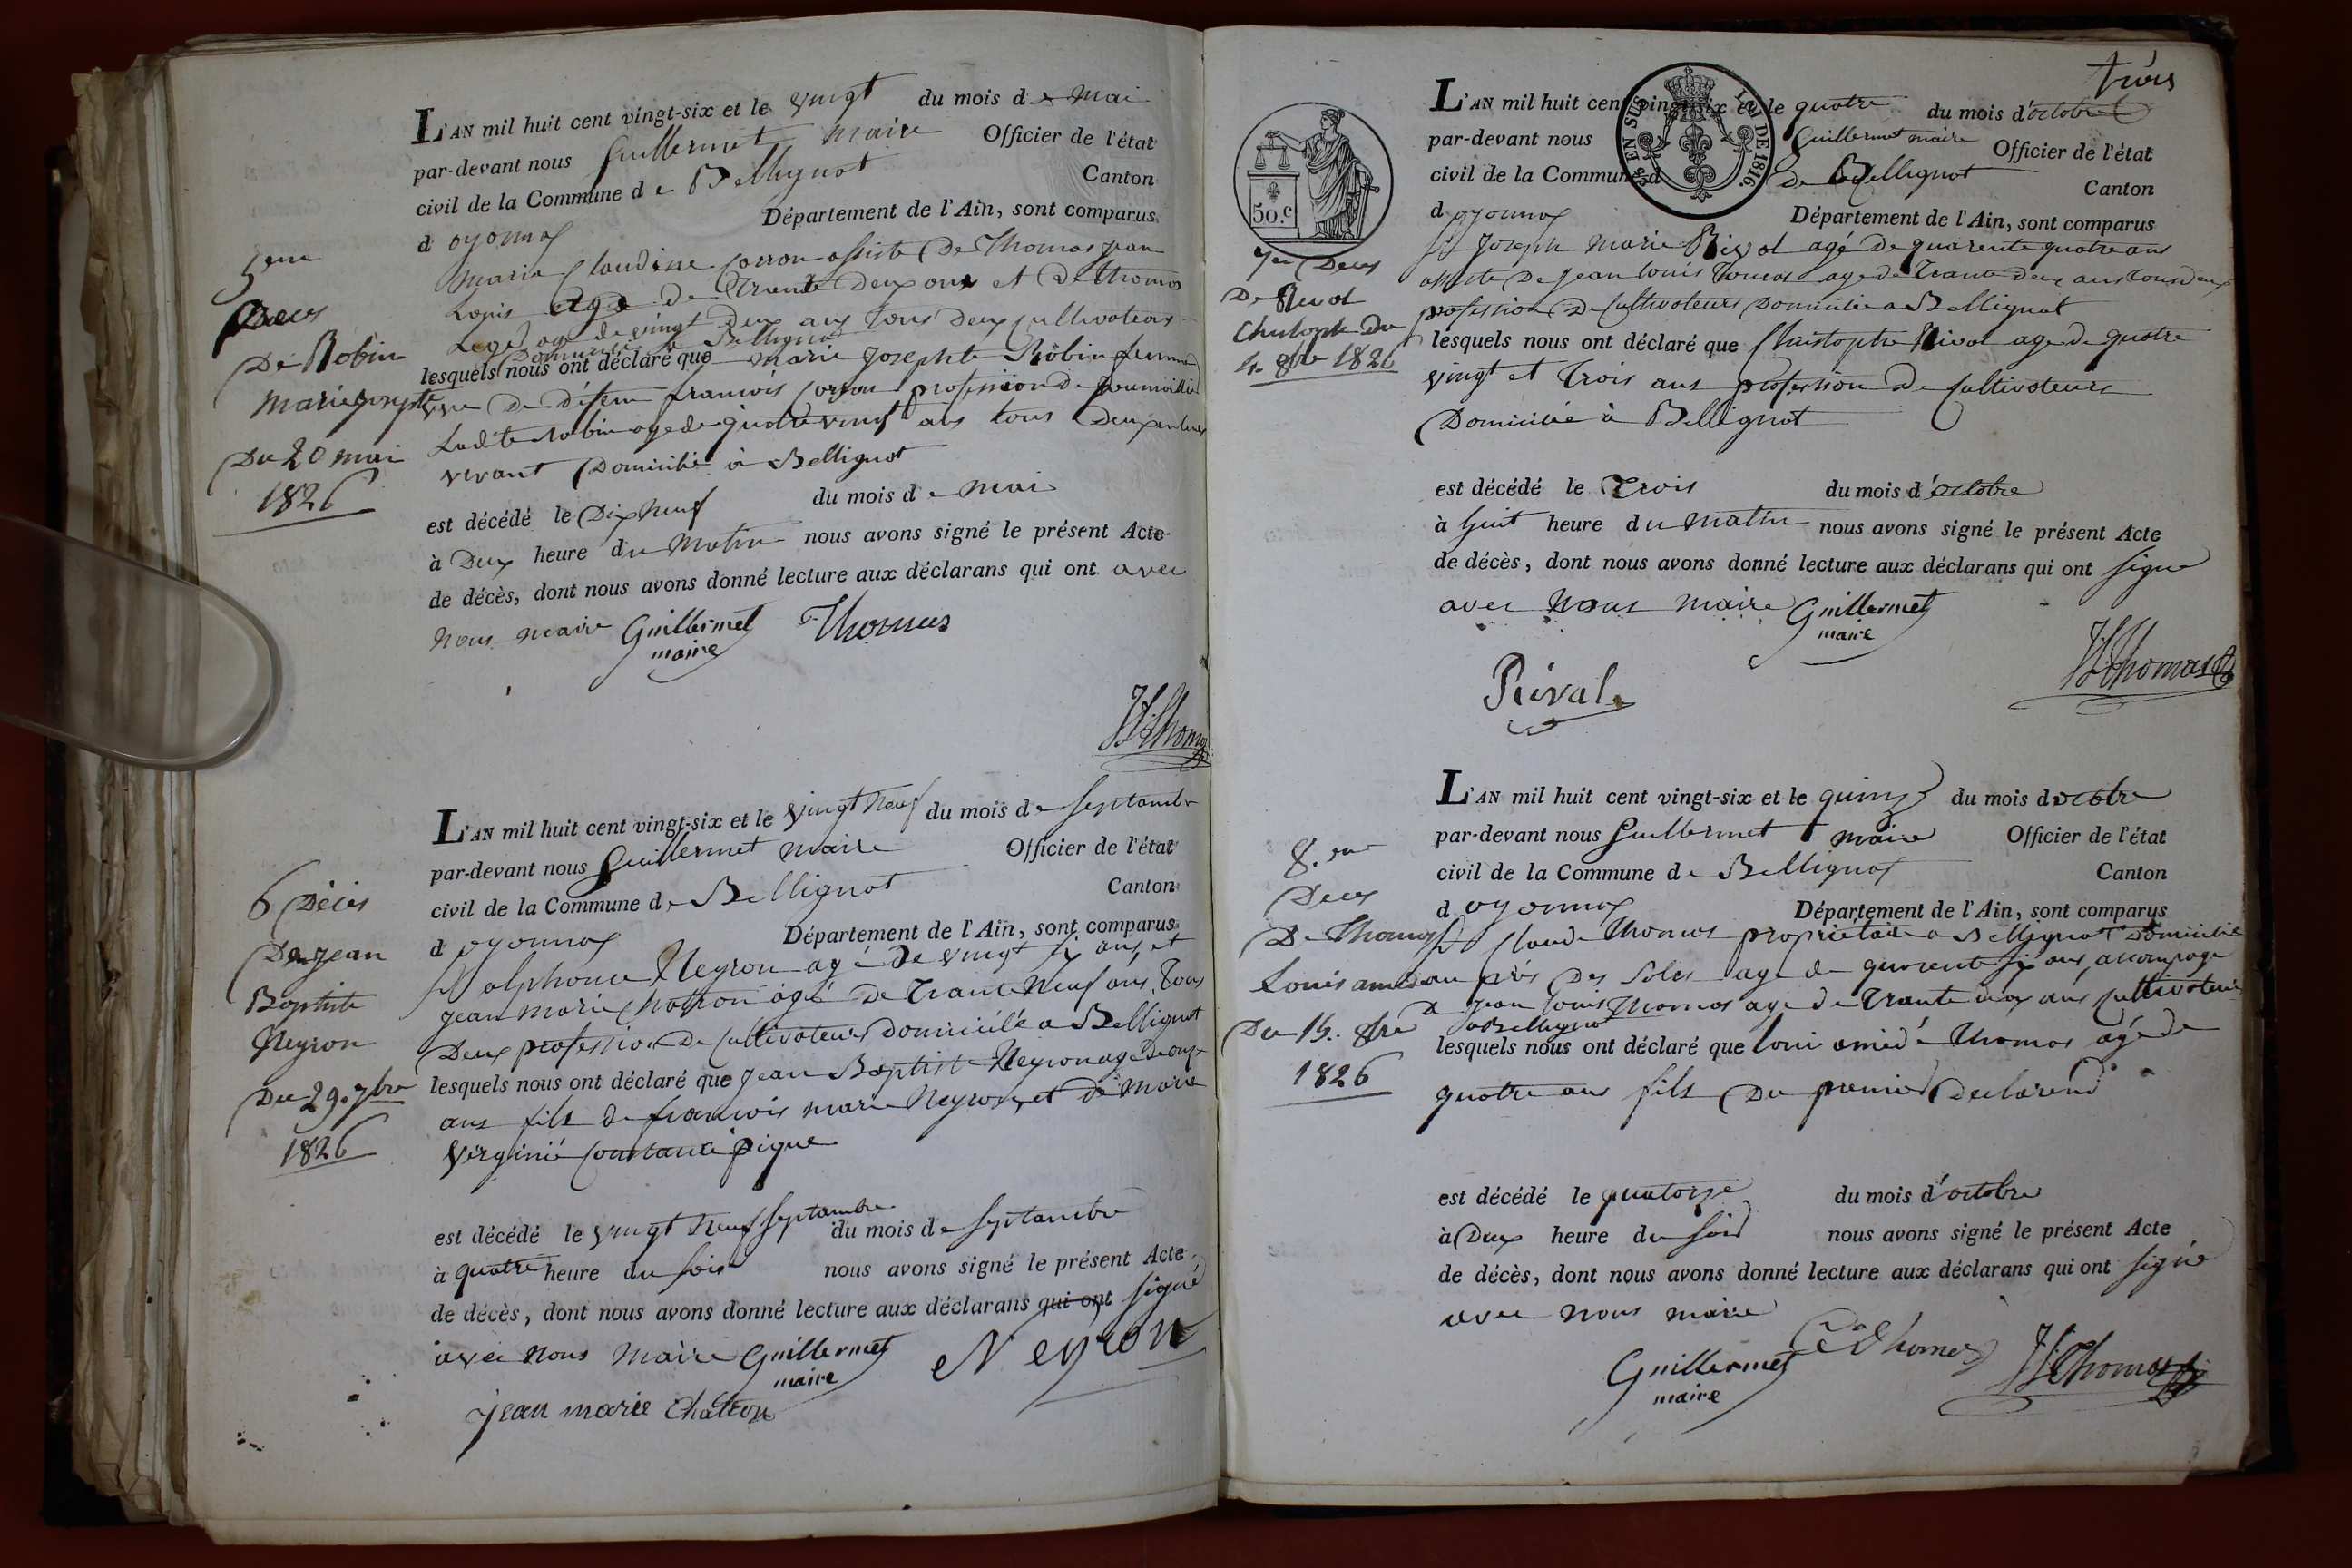 L'AN mil huit cent vingt-six et le vingt du mois de mai
par-devant nous Guillermet maire Officier de l'état
civil de la Commune de Bellignat Canton
d oyonnax Département de l'Ain, sont comparus
Marie Claudine Corron assiste De Thomas jean
Louis age de Trante Deux ans et De Thomas
age de vingt deux ans tous Deux cultivateurs
Domiciliés a Bellignat
lesquels nous ont déclaré que marie Josephte Robin femme
De francois Corron profession de
Ladite Robin age de quatre vingt ans tous Deux
vivant Domicilié à Bellignat
est décédé le Dix neuf du mois de mai
à Deux heure du Matin nous avons signé le présent Acte
de décès, dont nous avons donné lecture aux déclarans qui ont avec
nous maire Guillermet Thomas
maire
JLThomas
5eme
Deces
De Robin
Marie josephte
Du 20 mai
1826
L'AN mil huit cent vingt-six et le vingt neuf du mois de septambre
par-devant nous Guillermet maire Officier de l'état
civil de la Commune de Bellignat Canton
d oyonnax Département de l'Ain, sont comparus
Sr alphonce Neyron agé de vingt six ans et
jean marie Chatron agé de Trante Neuf ans Tous
Deux profession De Cultivateurs domicilié a Bellignat
lesquels nous ont déclaré que jean Baptiste Neyron agé de onze
ans fils de francois marie Neyron et de marie
virginie Constance pigue
est décédé le vingt Neuf septambre du mois de septambre
à quatre heure du soir nous avons signé le présent Acte
de décès, dont nous avons donné lecture aux déclarans qui ont signé
avec nous Maire Guillermet Neyron
maire
jean marie Chatron
6 Décès
De jean
Baptiste
Neyron
Du 29. 7bre
1826
trois
L'AN mil huit cent vingt-six et le quatre du mois d'octobre
par-devant nous Guillermet maire Officier de l'état
civil de la Commune d De Bellignat Canton
d oyonnax Département de l'Ain, sont comparus
Sr Joseph Marie Rival agé de quarente quatre ans
assiste De jean louis Thomas age de Trante deux ans tous deux
profession De Cultivateurs Domicilié a Bellignat
lesquels nous ont déclaré que Christophe Rival age de quatre
vingt et Trois ans profession De Cultivateurs
Domicilié à Bellignat
est décédé le Trois du mois d'octobre
à huit heure du matin nous avons signé le présent Acte
de décès, dont nous avons donné lecture aux déclarans qui ont signé
avec nous maire Guillermet
maire
JLThomas
Rival
50 c.
S EN SUS
LOI DE 1816.
7em Deces
De Rival
Christophe Du
4. 8bre 1826
L'AN mil huit cent vingt-six et le quinze du mois doctobre
par-devant nous Guillermet maire Officier de l'état
civil de la Commune de Bellignat Canton
d oyonnax Département de l'Ain, sont comparus
Sr Claude Thomas propriétaire a Bellignat Domicilié
au prés Des Soles age de quarente six ans, accompagé
De jean louis Thomas age de Trante deux ans cultivateur
a Bellignat
lesquels nous ont déclaré que loui amédé Thomas agé de
quatre ans fils Du premier Declarend
est décédé le quatorze du mois d'octobre
à Deux heure du soir nous avons signé le présent Acte
de décès, dont nous avons donné lecture aux déclarans qui ont signé
avec nous maire
Guillermet Thomas JLThomas
maire
8.em
Deces
De Thomas
Louis amédé
Du 15. 8bre
1826